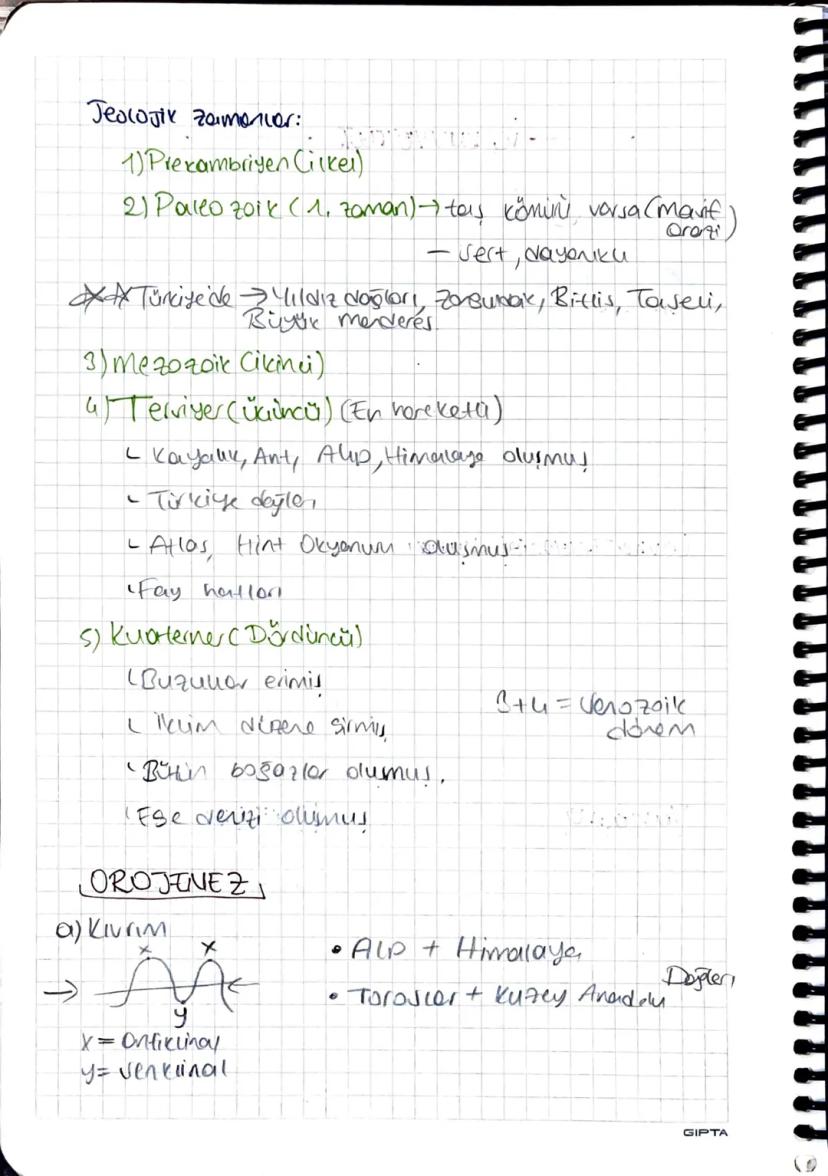 Jeolojik zamanlar:
1) Prekambriyen (ilkel)
2) Paleozoik (1. zaman) → taş kömürü varsa (masif arazi)
— sert, dayanıklı
** Türkiye'de → Yıldız dağları, Zonguldak, Bitlis, Taşeli,
Büyük menderes.
3) mezozoik (ikinci)
4) Tersiyer (üçüncü) (En hareketli)
Kayalık, Ant, Alp, Himalaya oluşmuş
Türkiye dağları
Atlas, Hint Okyanusu oluşmuş
Fay hatları
5) Kuaterner (Dördüncü)
Buzullar erimiş
İklim düzene girmiş
3+4 = Senozoik
dönem
Bütün boğazlar oluşmuş.
Ege denizi oluşmuş
OROJENEZ
a) Kıvrım
x x
y
x = antiklinal
y = senklinal
• Alp + Himalaya
• Toroslar + Kuzey Anadolu Dağları
GIPTA